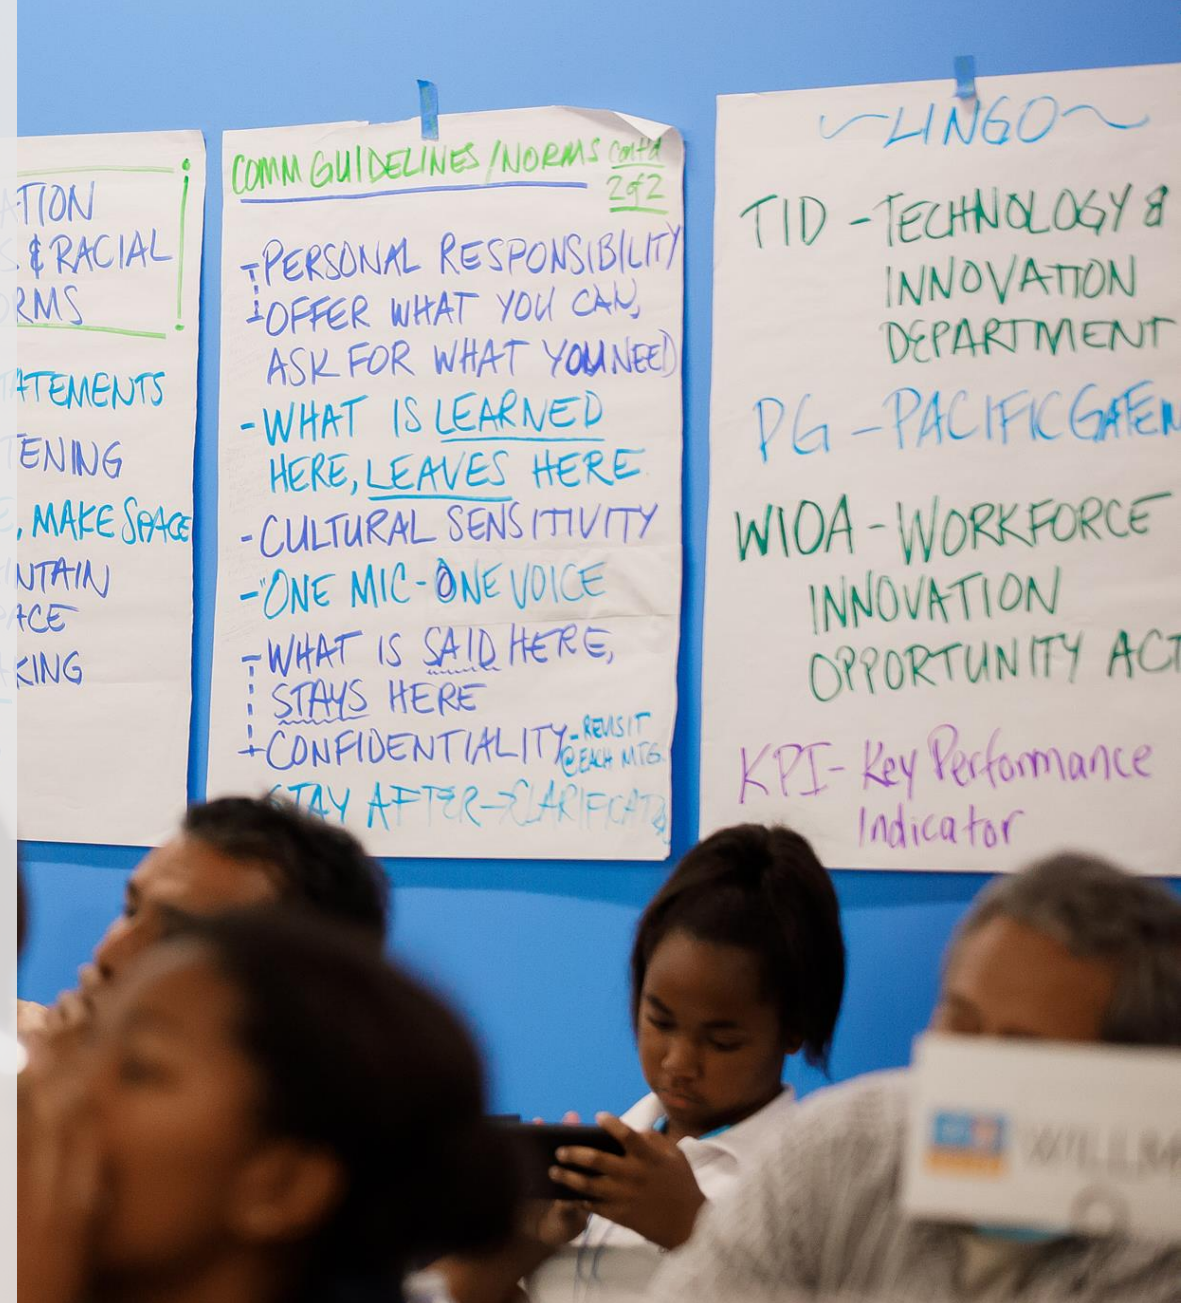 & RACIAL
MAKE SPACE
COMM GUIDELINES/NORMS cont'd
2 of 2
-PERSONAL RESPONSIBILITY
-OFFER WHAT YOU CAN,
ASK FOR WHAT YOU NEED
-WHAT IS LEARNED
HERE, LEAVES HERE
-CULTURAL SENSITIVITY
-"ONE MIC-ONE VOICE
-WHAT IS SAID HERE,
STAYS HERE
CONFIDENTIALITY -REVISIT
@EACH MTG.
STAY AFTER→
~LINGO~
TID -TECHNOLOGY &
INNOVATION
DEPARTMENT
PG -PACIFIC
WIOA-WORKFORCE
INNOVATION
OPPORTUNITY ACT
KPI- Key Performance
Indicator